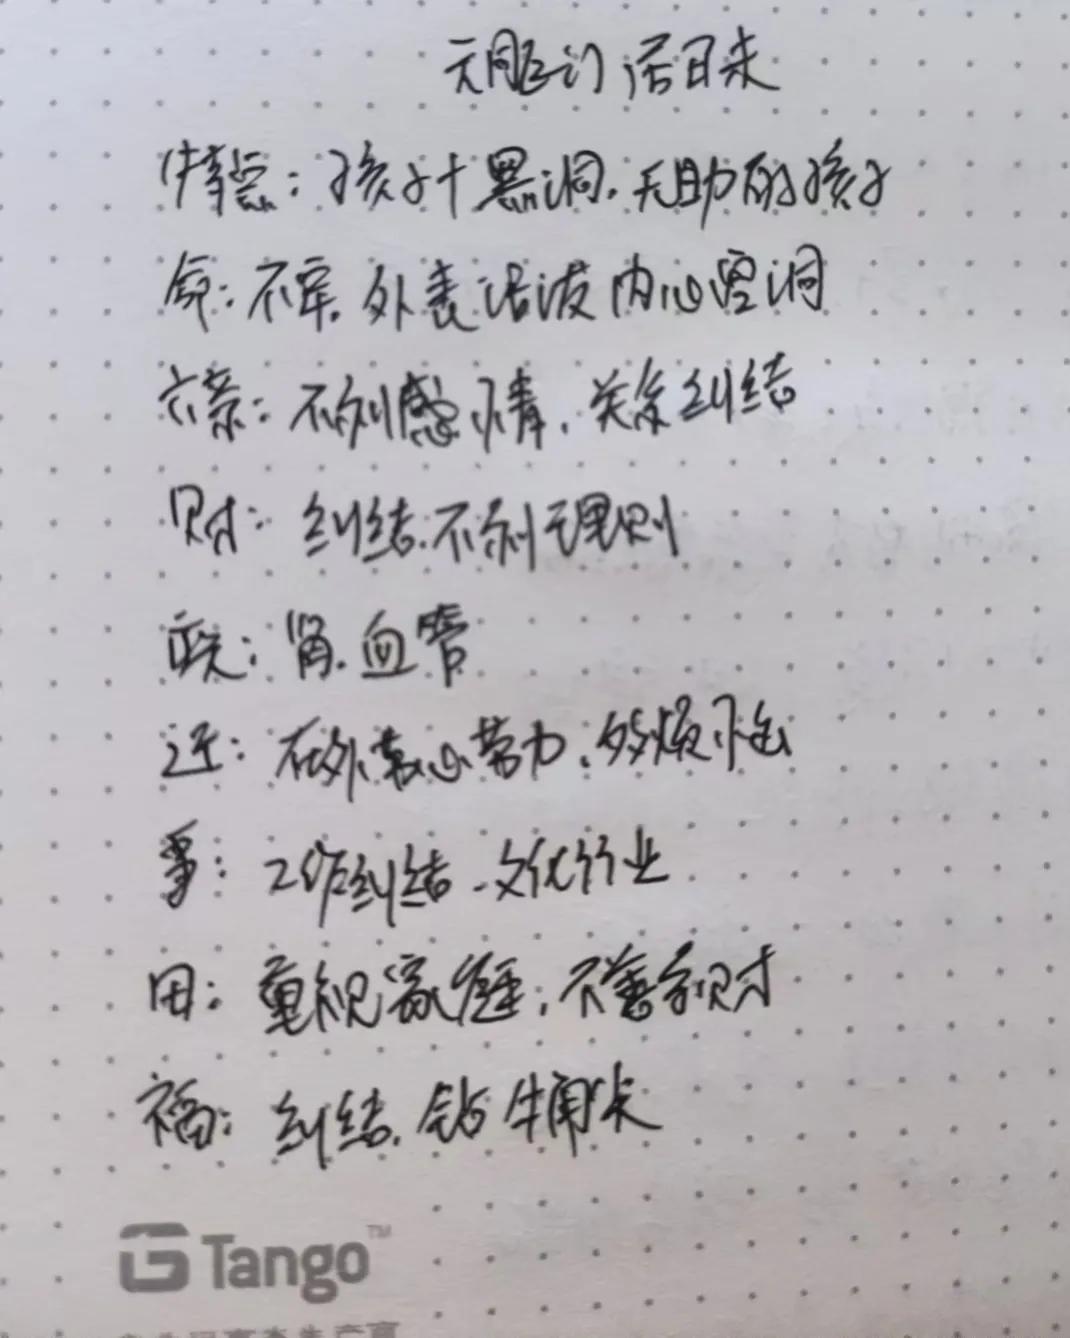 天同巨门 活日未
特点：孩子+黑洞，无助的孩子
命：不牢，外表活泼内心空洞
六亲：不利感情，关系纠结
财：纠结，不利理财
疾：肾，血管
迁：在外劳心劳力，多烦不出
事：工作纠结，文化行业
田：重视家庭，不善家财
福：纠结，钻牛角尖
Tango™